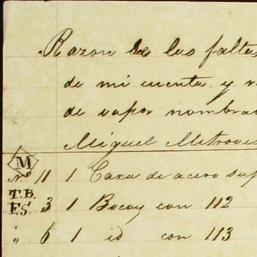 Razon de las faltas
de mi cuenta, y r
de vapor nombra
Miguel
M
No 11 1 Caxa de acero sup
T.B.
F.S. 3 1 Bocoy con 112
" 6 1 id con 113